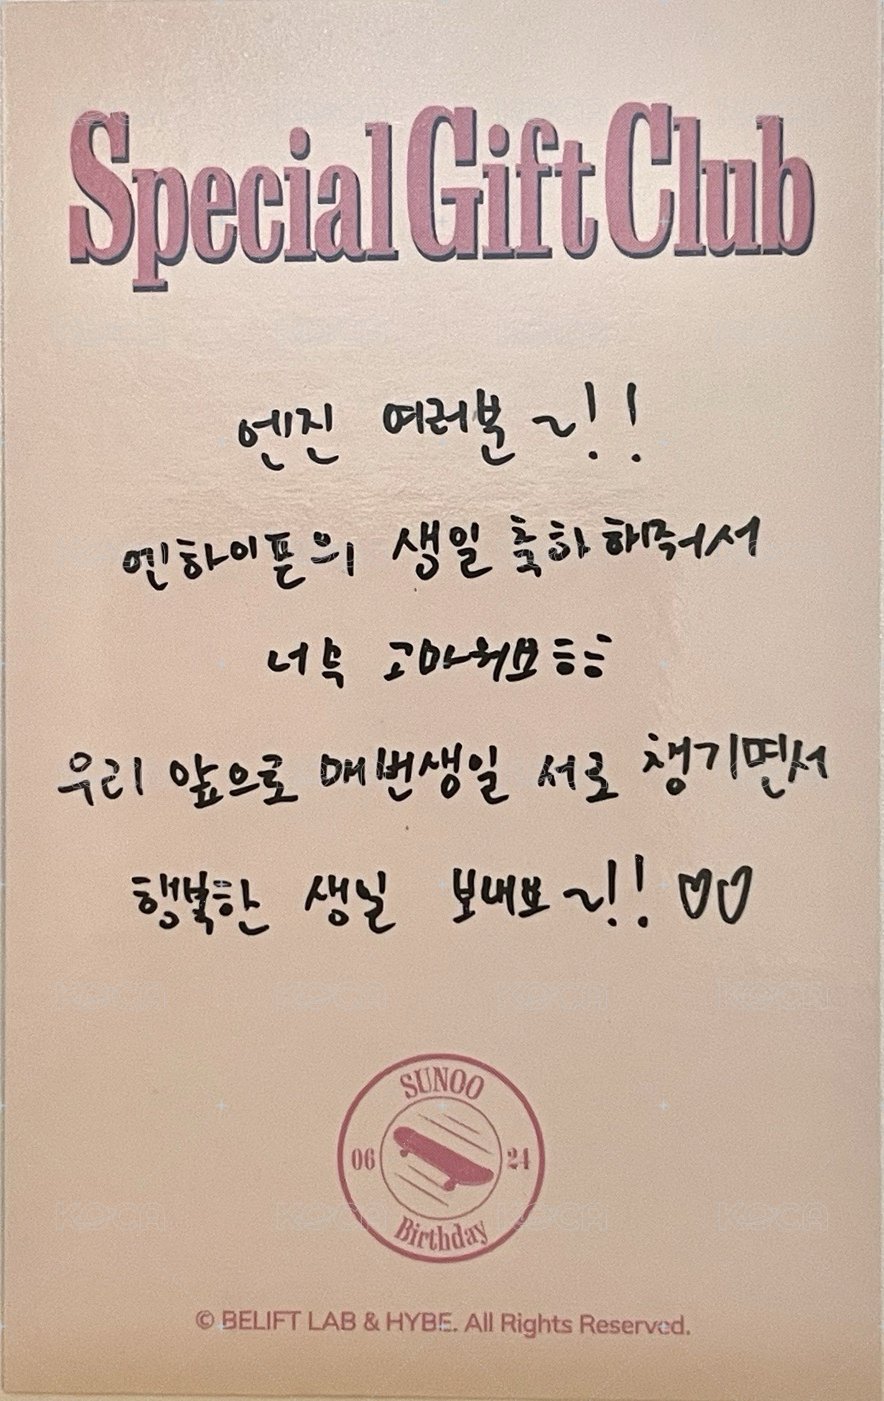 Special Gift Club
엔진 여러분~!!
엔하이픈의 생일 축하해줘서
너무 고마워요ㅎㅎ
우리 앞으로 매번생일 서로 챙기면서
행복한 생일 보내요~!! ♡♡
SUNOO
06 24
Birthday
© BELIFT LAB & HYBE. All Rights Reserved.